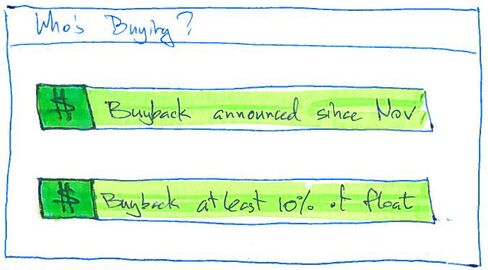 Who's Buying?
$ Buyback announced since Nov
$ Buyback at least 10% of float